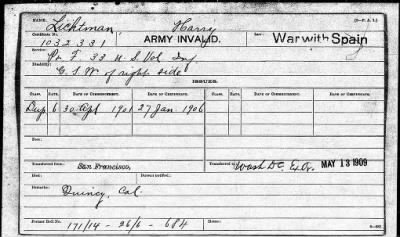 (3—P. A. 1.)
Name: Lichtman Harry
Certificate No. 1032331 ARMY INVALID. Law: War with Spain
Service: Pr. F. 33 U. S. Vol Inf.
Disability: G. S. W. of right side
ISSUES.
CLASS. RATE. DATE OF COMMENCEMENT. DATE OF CERTIFICATE. CLASS. RATE. DATE OF COMMENCEMENT. DATE OF CERTIFICATE.
Dup 6 30 Sept 1901 27 Jan 1906
Died: Bureau notified:
Transferred from San Francisco, Transferred to Wash DC. MAY 13 1909
Died: Bureau notified:
Remarks: Quincy, Cal.
Former Roll No. 171/14 - 26/6 - 684 Home: